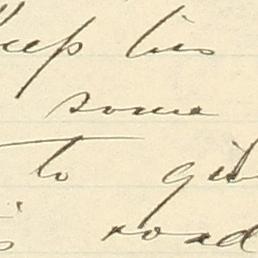 keep his
some
to giv
is road